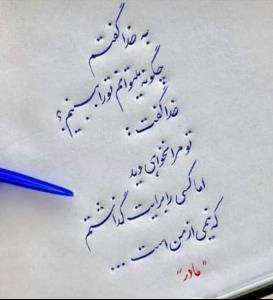 به خدا گفتم
چگونه میتوانم تو را ببینم؟
خدا گفت :
تو مرا نخواهی دید
اما کسی را برایت گذاشتم
که نیمی از من است ...
"مادر"